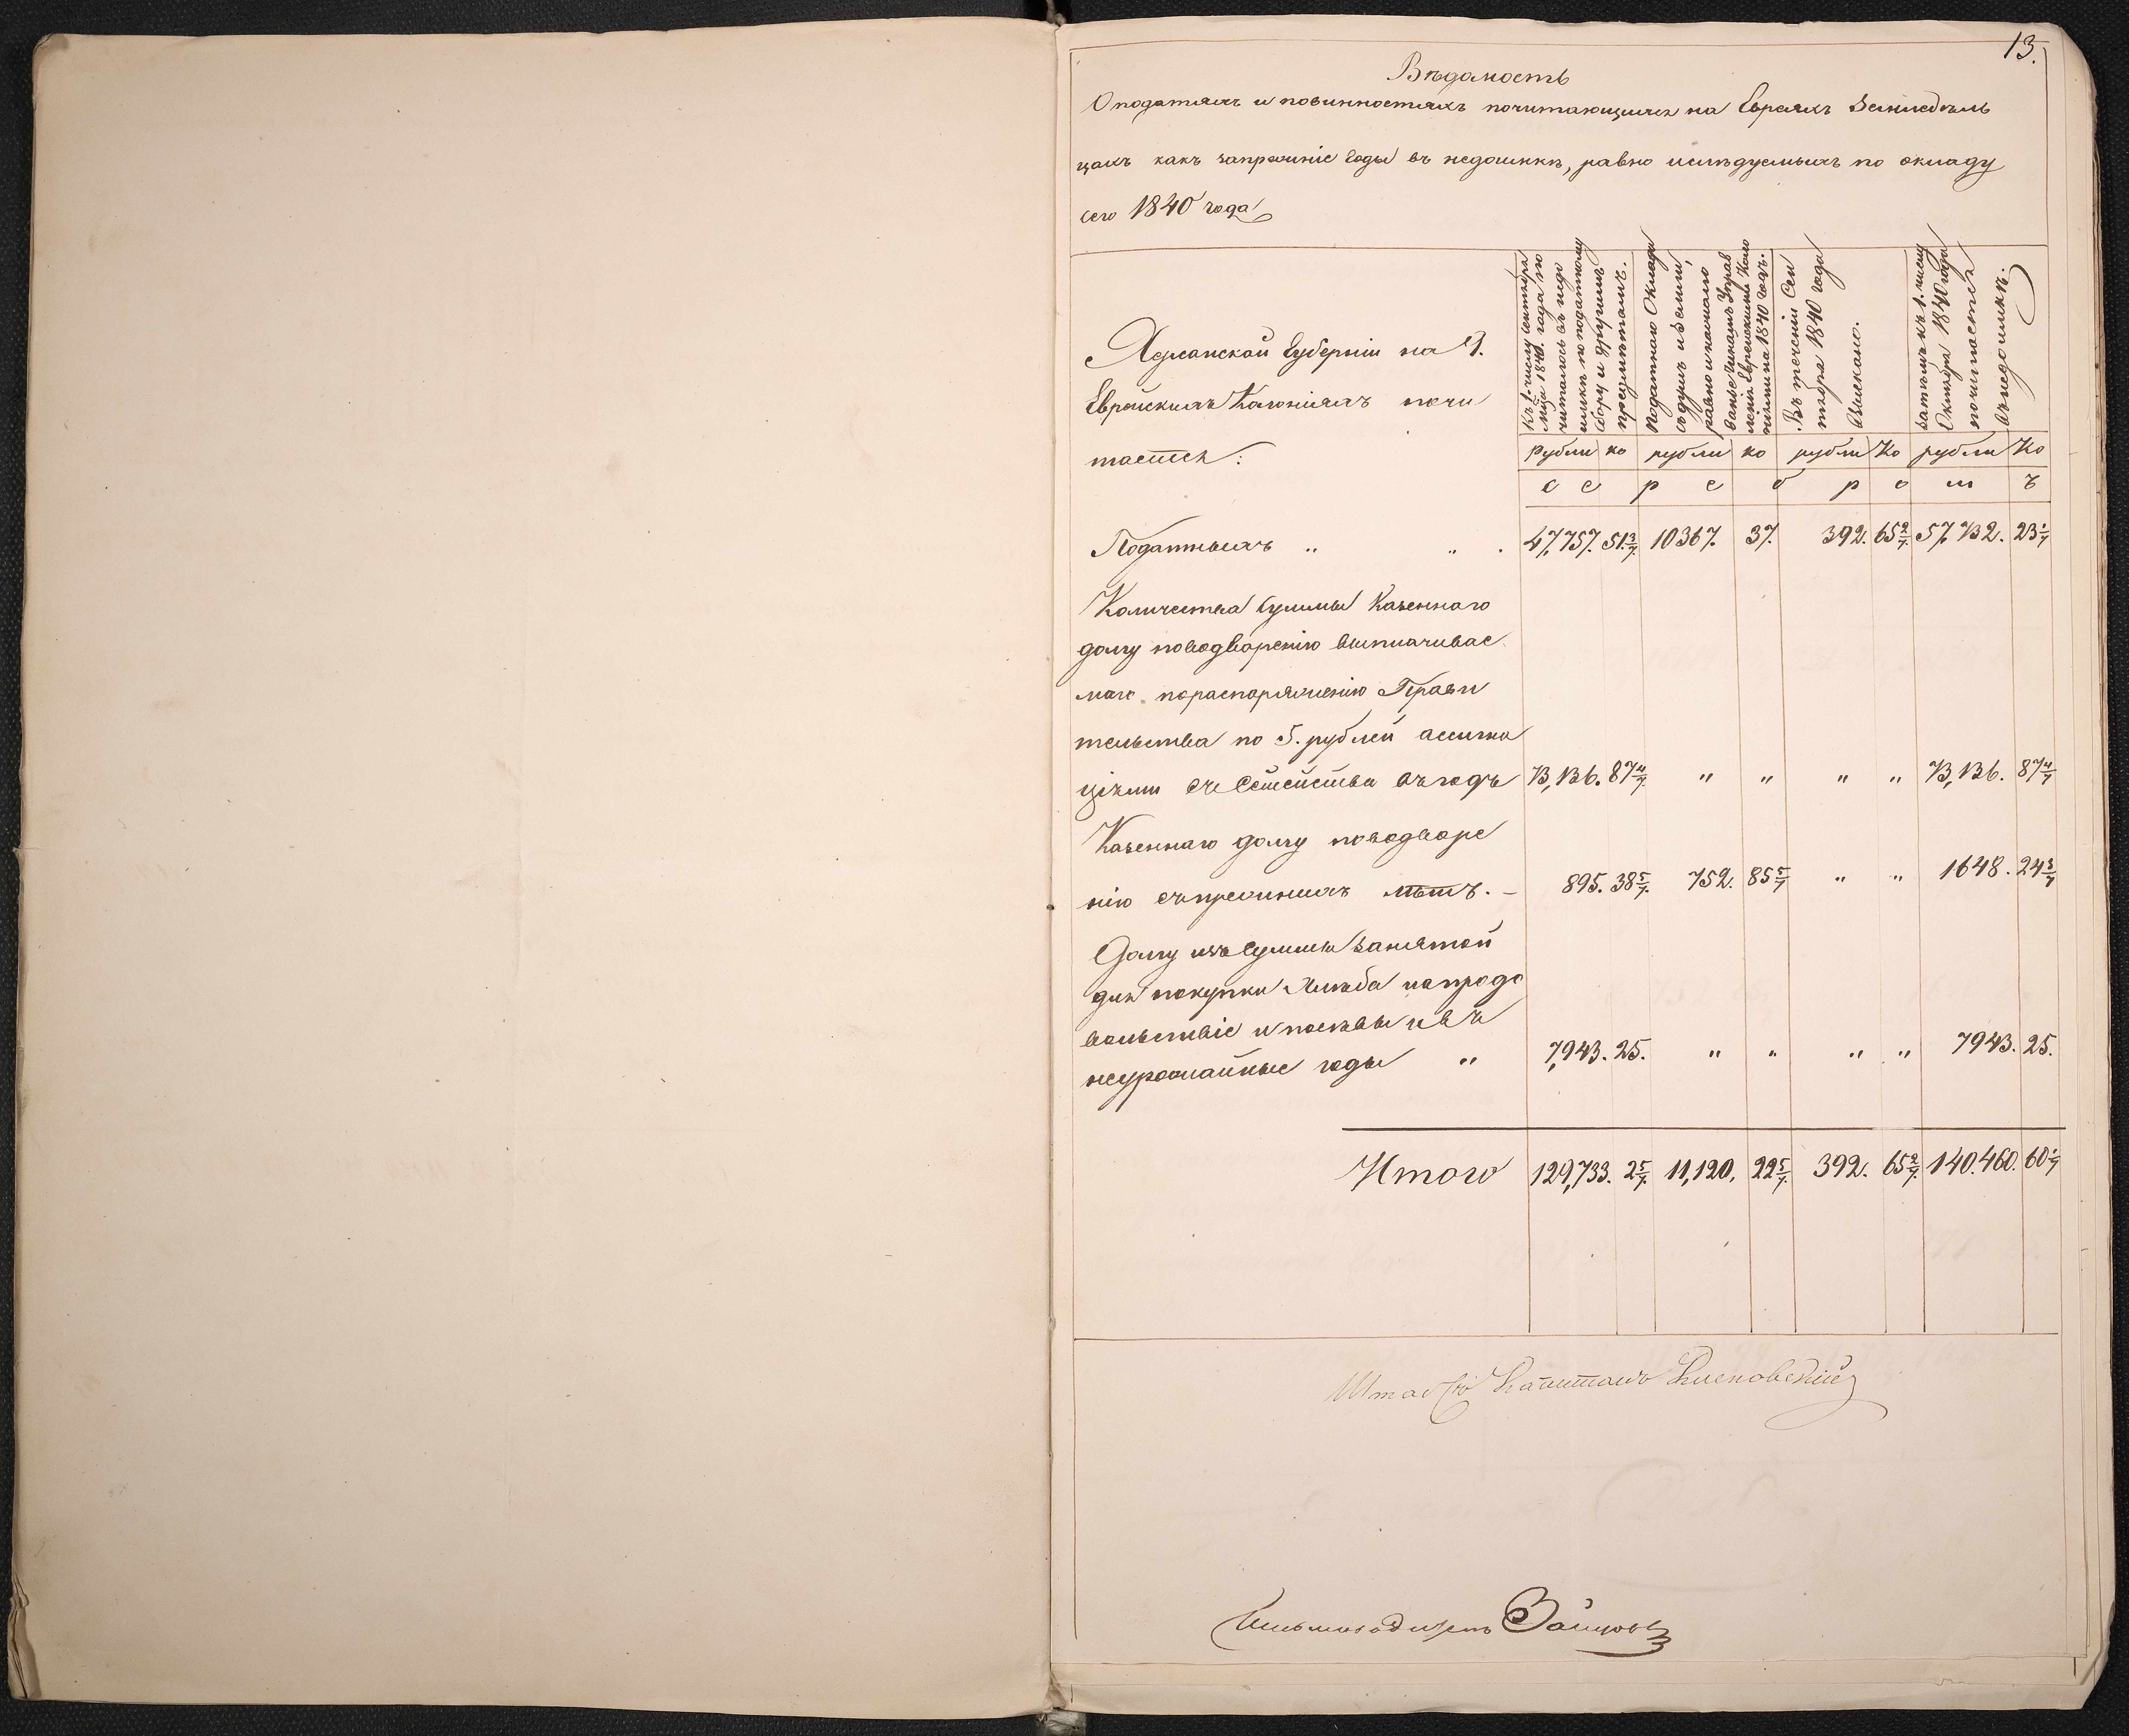 13.
Вѣдомость
О податяхъ и повинностяхъ почитающихся на Евреяхъ Земледѣль
цахъ какъ запрошшіе годы въ недоимкѣ, равно ислѣдуемыхъ по окладу
сего 1840 года
Херсонской Губерніи на 9.
Еврейскихъ Колоніяхъ почи
тается:
Къ 1. числу сентября
мця 1840. года по
читалось въ недо
имкѣ по податному
сбору и другимъ
предмѣтамъ.
Податнаго Оклада
съ душъ и земли,
равно и на жало
ванье Чинамъ Управ
ленія Еврейскими Коло
ніями на 1840 годъ.
Въ теченіи Сен
тября 1840 года
взыскано.
Затѣмъ къ 1. числу
Октября 1840 года
почитается
въ недоимкѣ.
рубли ко рубли ко рубли Ко рубли Ко
с е р е б р о м ъ
Податныхъ " " . 47,757. 51 3/7. 10367. 37. 392. 65 2/7. 57,732. 23 1/7
Количества Суммы Казеннаго
долгуповодворенію выплачивае
маго пораспоряженію Прави
тельства по 5. рублей ассигна
ціями съ Семейства въ годъ 73,136. 87 4/7. " " " " 73,136. 87 4/7
Казеннаго долгу поводворе
нію съ прежнихъ лѣтъ. – 895. 38 5/7. 752. 85 5/7 " " 1648. 24 3/7
Долгу изъ Суммы Занятой
для покупки Хлѣба напродо
вольствіе и посѣвы въ
неурожайные годы " 7,943. 25. " " " " 7943. 25.
Итого 129,733. 2 5/7. 11,120. 22 5/7. 392. 65 2/7. 140.460. 60 1/7
Штабсъ Капитанъ
Письмоводитель Зайцовъ